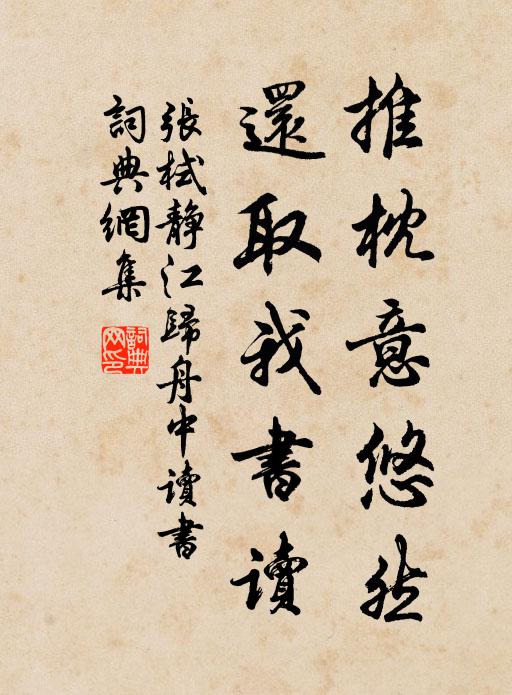 推枕意悠然
還取我書讀
張栻静江歸舟中讀書
詞典網集
詞典网印